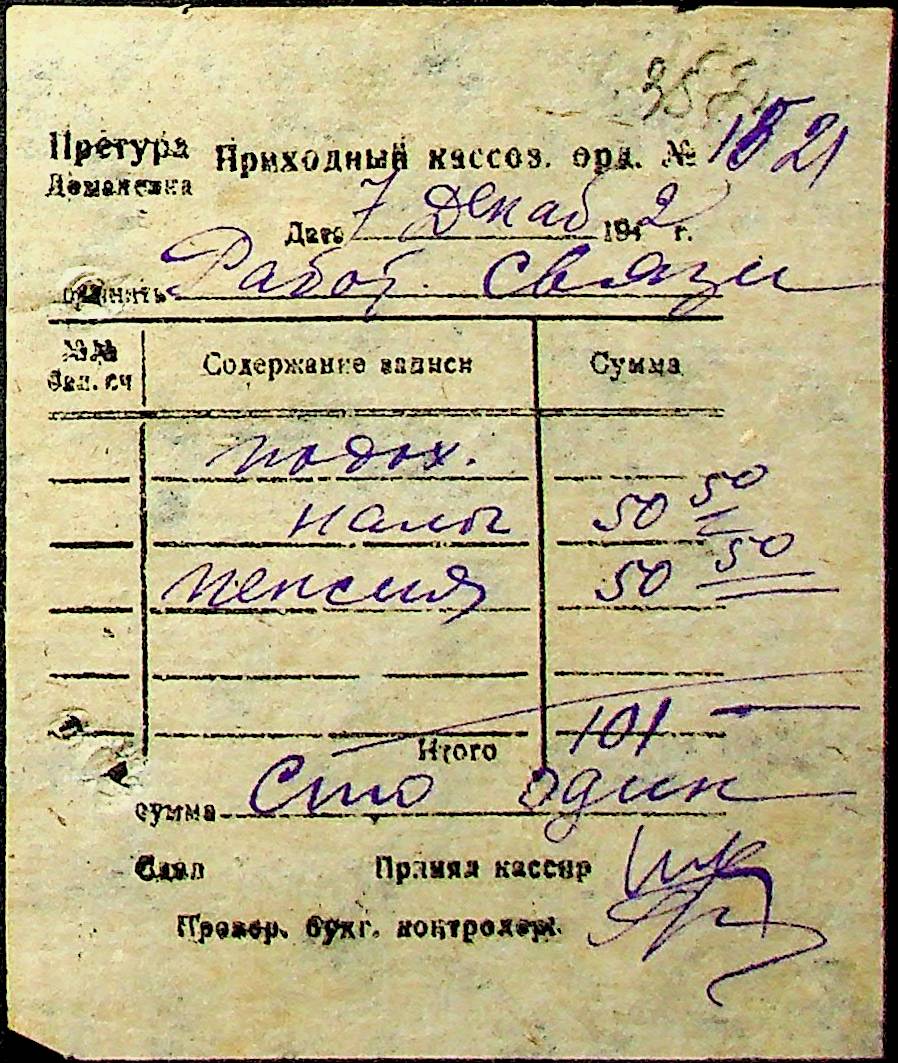 357
Претура Приходный кассов. орд. № 1821
Доманевка
Дата 7 Декаб 1942 г.
принять Работ. Связи
№№ Содержание записи Сумма
бал. сч
подох.
налог 50 50
пенсия 50 50
Итого 101
сумма Сто один
Сдал Принял кассир
Провер. бухг. контролер